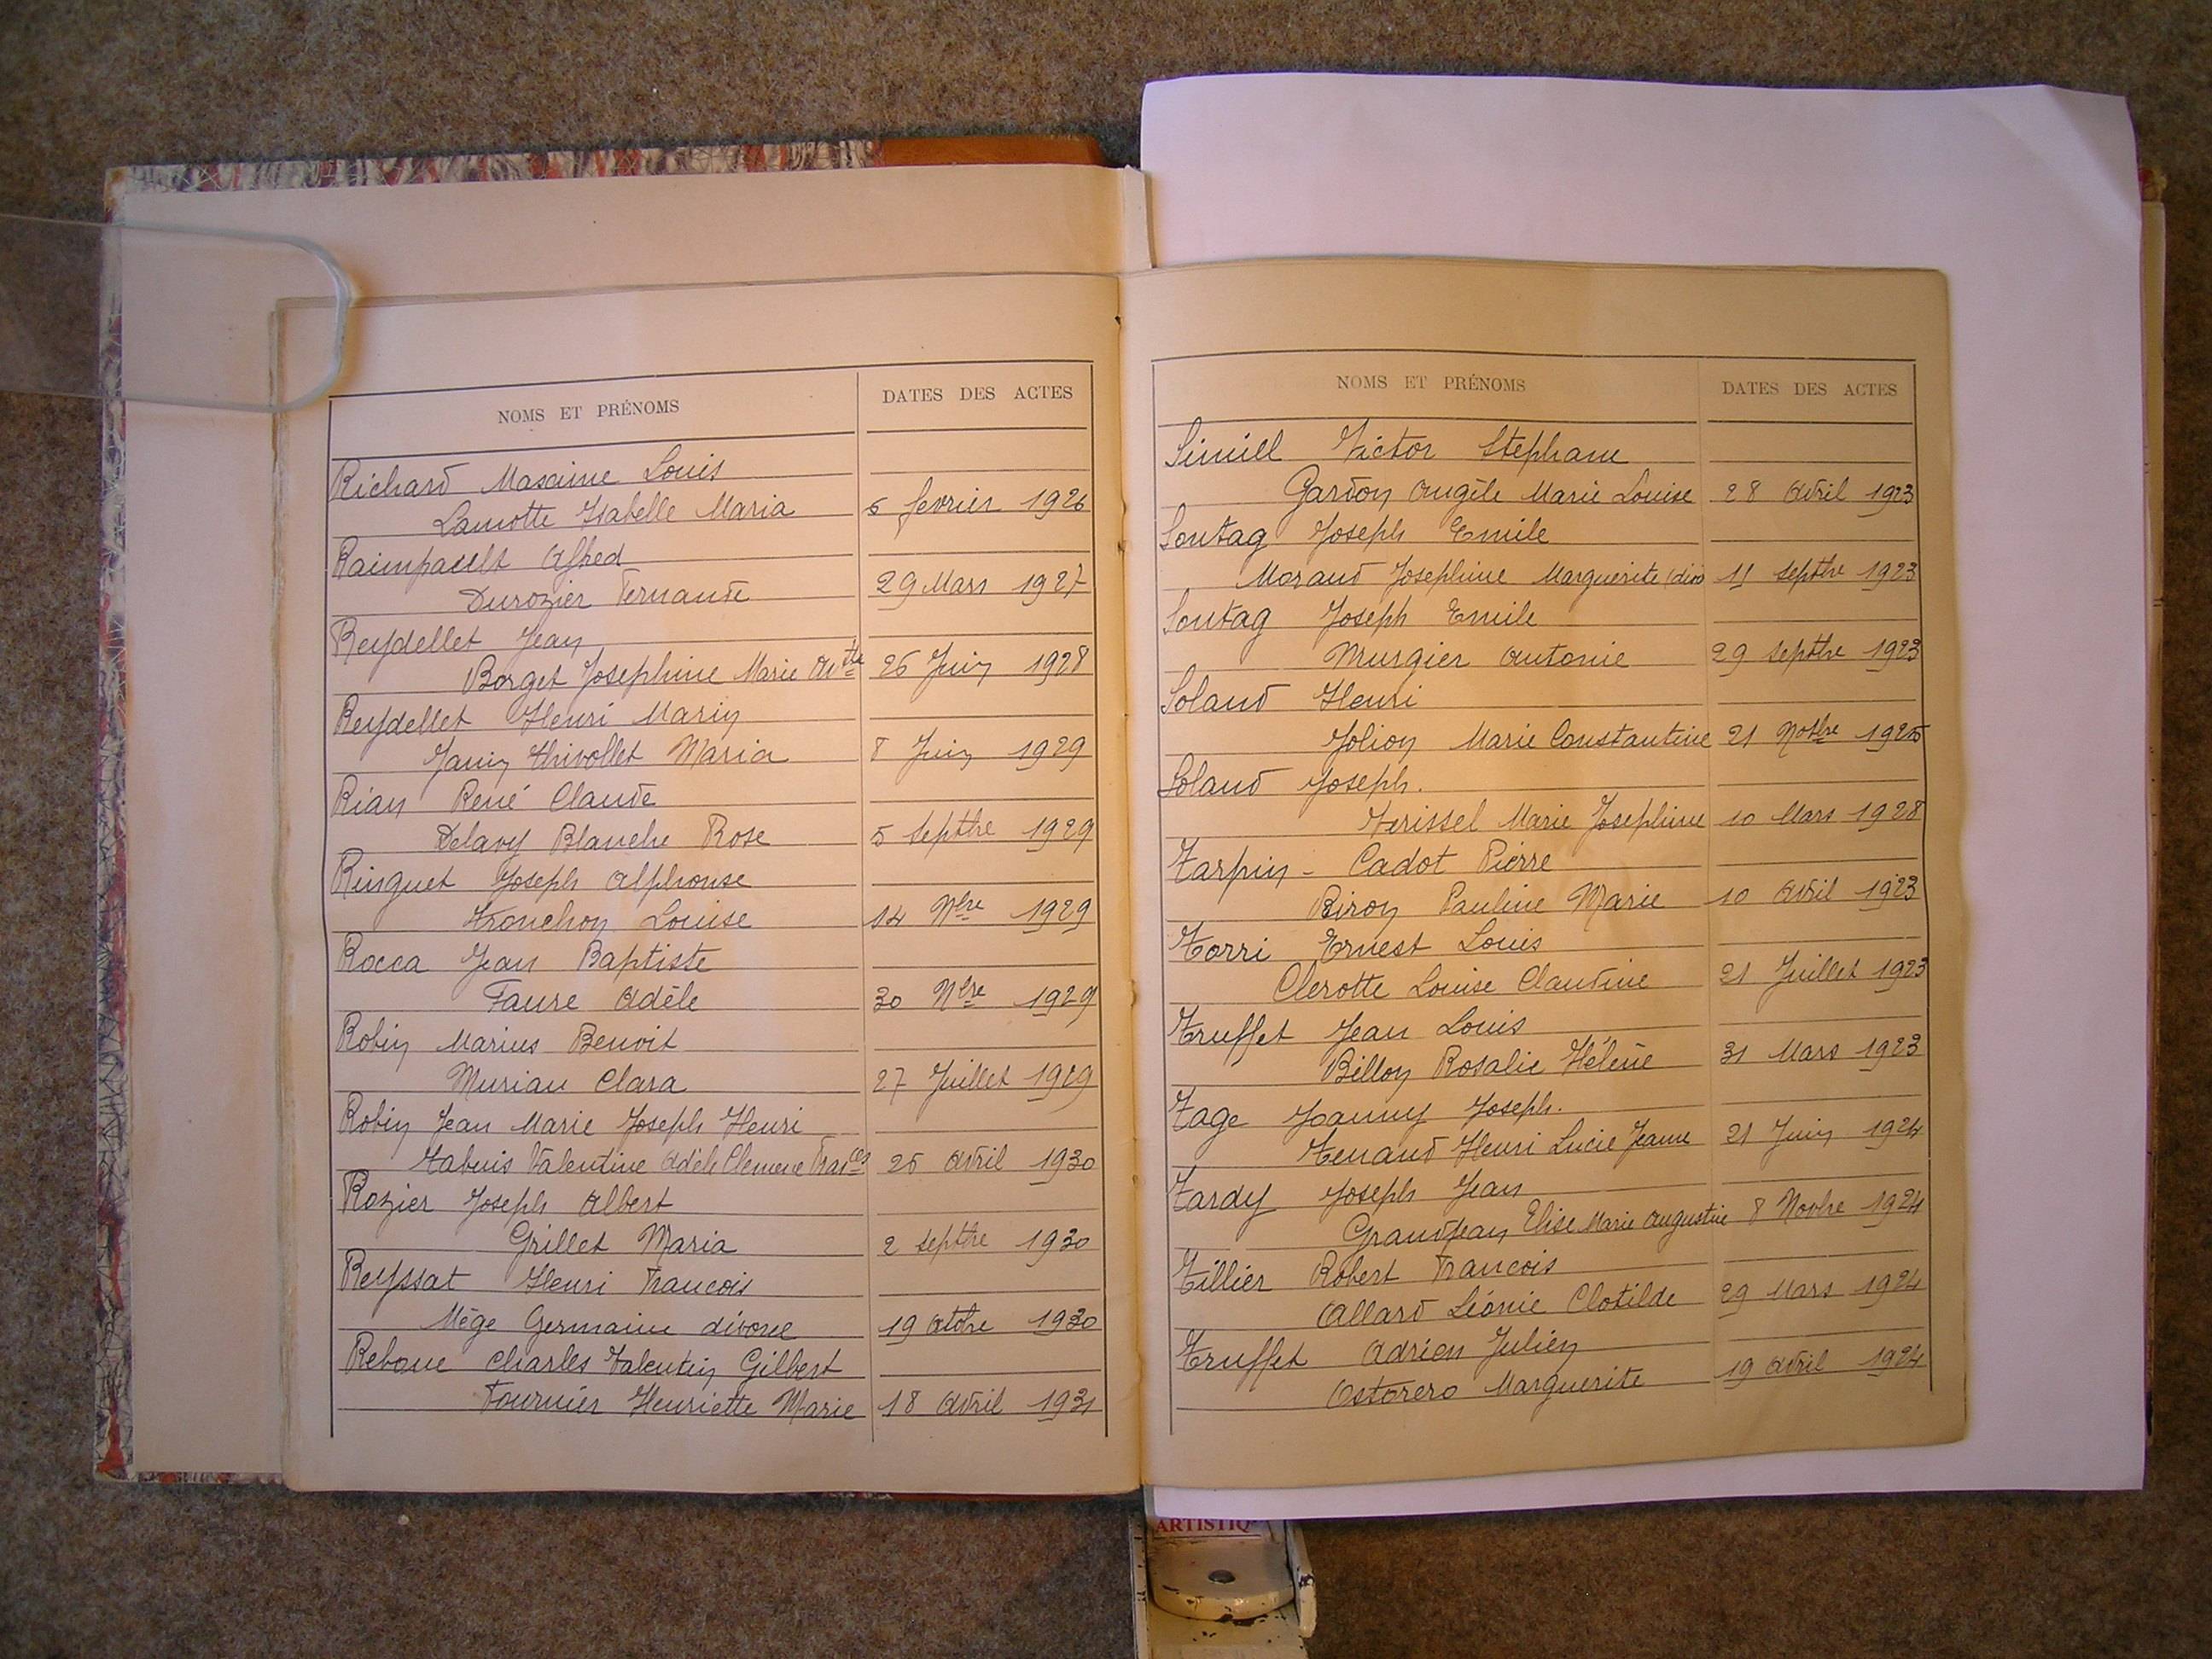 NOMS ET PRÉNOMS DATES DES ACTES
Richard Maxime Louis
Lamotte Isabelle Maria 6 fevrier 1926
Raimpault Alfred
Durozier Fernande 29 Mars 1927
Reydellet Jean
Borget Josephine Marie 26 Juin 1928
Reydellet Henri Marin
Janin thivollet Maria 8 Juin 1929
Rian René Claude
Delavy Blanche Rose 5 Septbre 1929
Ringuet Joseph Alphonse
Tronchon Louise 14 Nbre 1929
Rocca Jean Baptiste
Faure Adèle 30 Nbre 1929
Robin Marius Benoit
Murian Clara 27 Juillet 1929
Robin Jean Marie Joseph Henri
Tabuis Valentine Adèle Clemence Frances 25 Avril 1930
Rozier Joseph Albert
Grillet Maria 2 Septbre 1930
Reyssat Henri Francois
Mège Germaine divorce 19 Octbre 1930
Reboue Charles Valentin Gilbert
Fournier Henriette Marie 18 Avril 1931
NOMS ET PRÉNOMS DATES DES ACTES
Simill Victor Stephane
Gardon Angèle Marie Louise 28 Avril 1923
Sontag Joseph Emile
Morand Josephine Marguerite (div) 11 Septbre 1923
Sontag Joseph Emile
Murgier Antonie 29 Septbre 1923
Soland Henri
Jolion Marie Constantine 21 Novbre 1925
Soland Joseph.
Verissel Marie Josephine 10 Mars 1928
Tarpin - Cadot Pierre
Biron Pauline Marie 10 Avril 1923
Torri Ernest Louis
Clerotte Louise Claudine 21 Juillet 1923
Truffet Jean Louis
Billon Rosalie Hélène 31 Mars 1923
Tage Joanny Joseph.
Tenand Henri Lucie Jeanne 21 Juin 1924
Tardy Joseph Jean
Grandjean Elise Marie Augustine 8 Novbre 1924
Tillier Robert Francois
Allard Léonie Clotilde 29 Mars 1924
Truffet Adrien Julien
Ostorero Marguerite 19 Avril 1924
ARTISTIQ